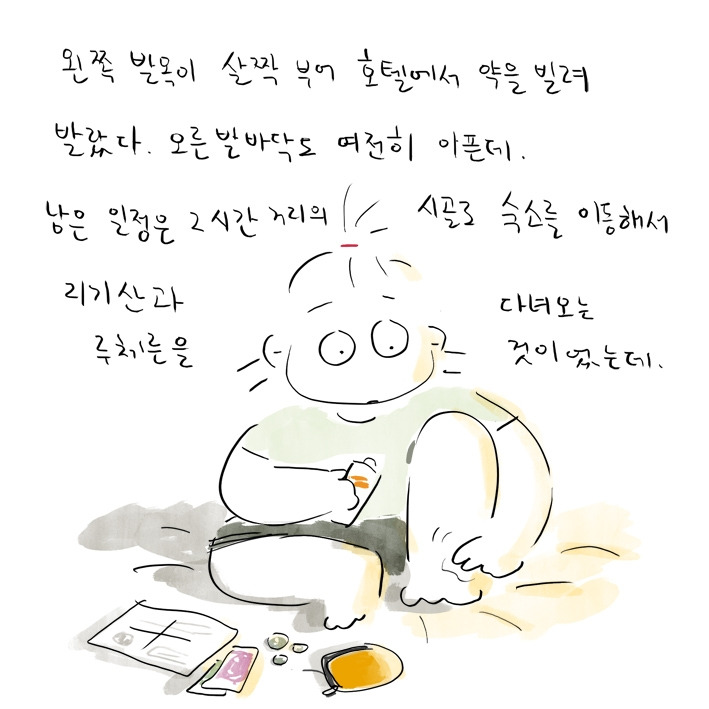 왼쪽 발목이 살짝 부어 호텔에서 약을 빌려
발랐다. 오른발바닥도 여전히 아픈데.
남은 일정은 2시간 거리의 시골로 숙소를 이동해서
리기산과 다녀오는
루체른을 것이었는데.